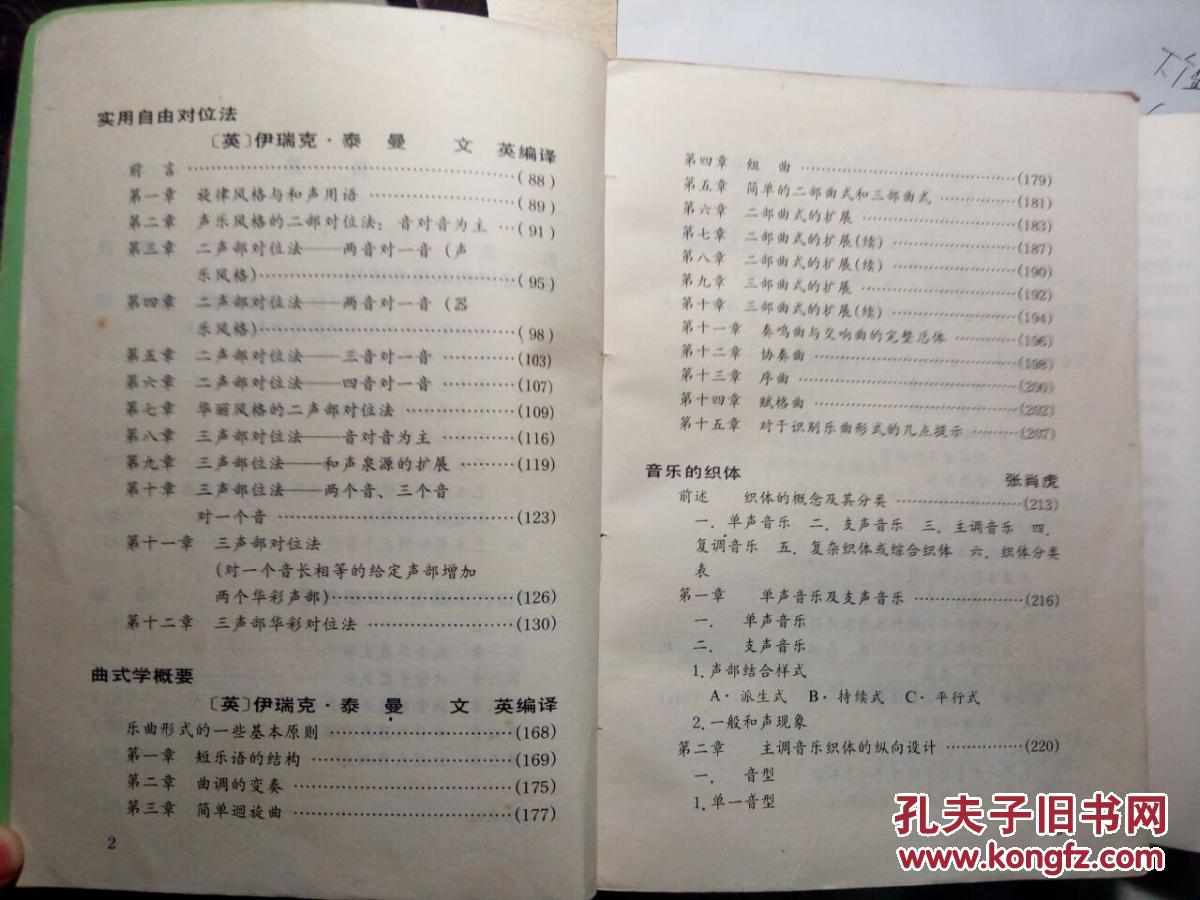 实用自由对位法
〔英〕伊瑞克·泰 曼 文 英编译
前 言 ……………………………………(88)
第一章 旋律风格与和声用语 ………………(89)
第二章 声乐风格的二部对位法：音对音为主 …(91)
第三章 二声部对位法——两音对一音（声
乐风格)……………………………(95)
第四章 二声部对位法——两音对一音（器
乐风格)……………………………(98)
第五章 二声部对位法——三音对一音 …………(103)
第六章 二声部对位法——四音对一音 …………(107)
第七章 华丽风格的二声部对位法 ……………(109)
第八章 三声部对位法——音对音为主 …………(116)
第九章 三声部位法——和声泉源的扩展 ………(119)
第十章 三声部位法——两个音、三个音
对一个音 ……………………………(123)
第十一章 三声部对位法
(对一个音长相等的给定声部增加
两个华彩声部)………………………(126)
第十二章 三声部华彩对位法 …………………(130)
曲式学概要
〔英〕伊瑞克·泰 曼 文 英编译
乐曲形式的一些基本原则 ………………………(168)
第一章 短乐语的结构 …………………………(169)
第二章 曲调的变奏 ……………………………(175)
第三章 简单迴旋曲 ……………………………(177)
2
第四章 组 曲 ……………………………(179)
第五章 简单的二部曲式和三部曲式 …………(181)
第六章 二部曲式的扩展 ……………………(183)
第七章 二部曲式的扩展(续) ………………(187)
第八章 二部曲式的扩展(续) ………………(190)
第九章 三部曲式的扩展 ……………………(192)
第十章 三部曲式的扩展(续) ………………(194)
第十一章 奏鸣曲与交响曲的完整总体 ………(196)
第十二章 协奏曲 ……………………………(198)
第十三章 序曲 ………………………………(200)
第十四章 赋格曲 ……………………………(202)
第十五章 对于识别乐曲形式的几点提示 ……(207)
音乐的织体 张肖虎
前述 织体的概念及其分类 …………………(213)
一．单声音乐 二．支声音乐 三．主调音乐 四．
复调音乐 五．复杂织体或综合织体 六．织体分类
表
第一章 单声音乐及支声音乐 ………………(216)
一． 单声音乐
二． 支声音乐
1.声部结合样式
A·派生式 B·持续式 C·平行式
2.一般和声现象
第二章 主调音乐织体的纵向设计 ……………(220)
一． 音型
1.单一音型
孔夫子旧书网
www.kongfz.com